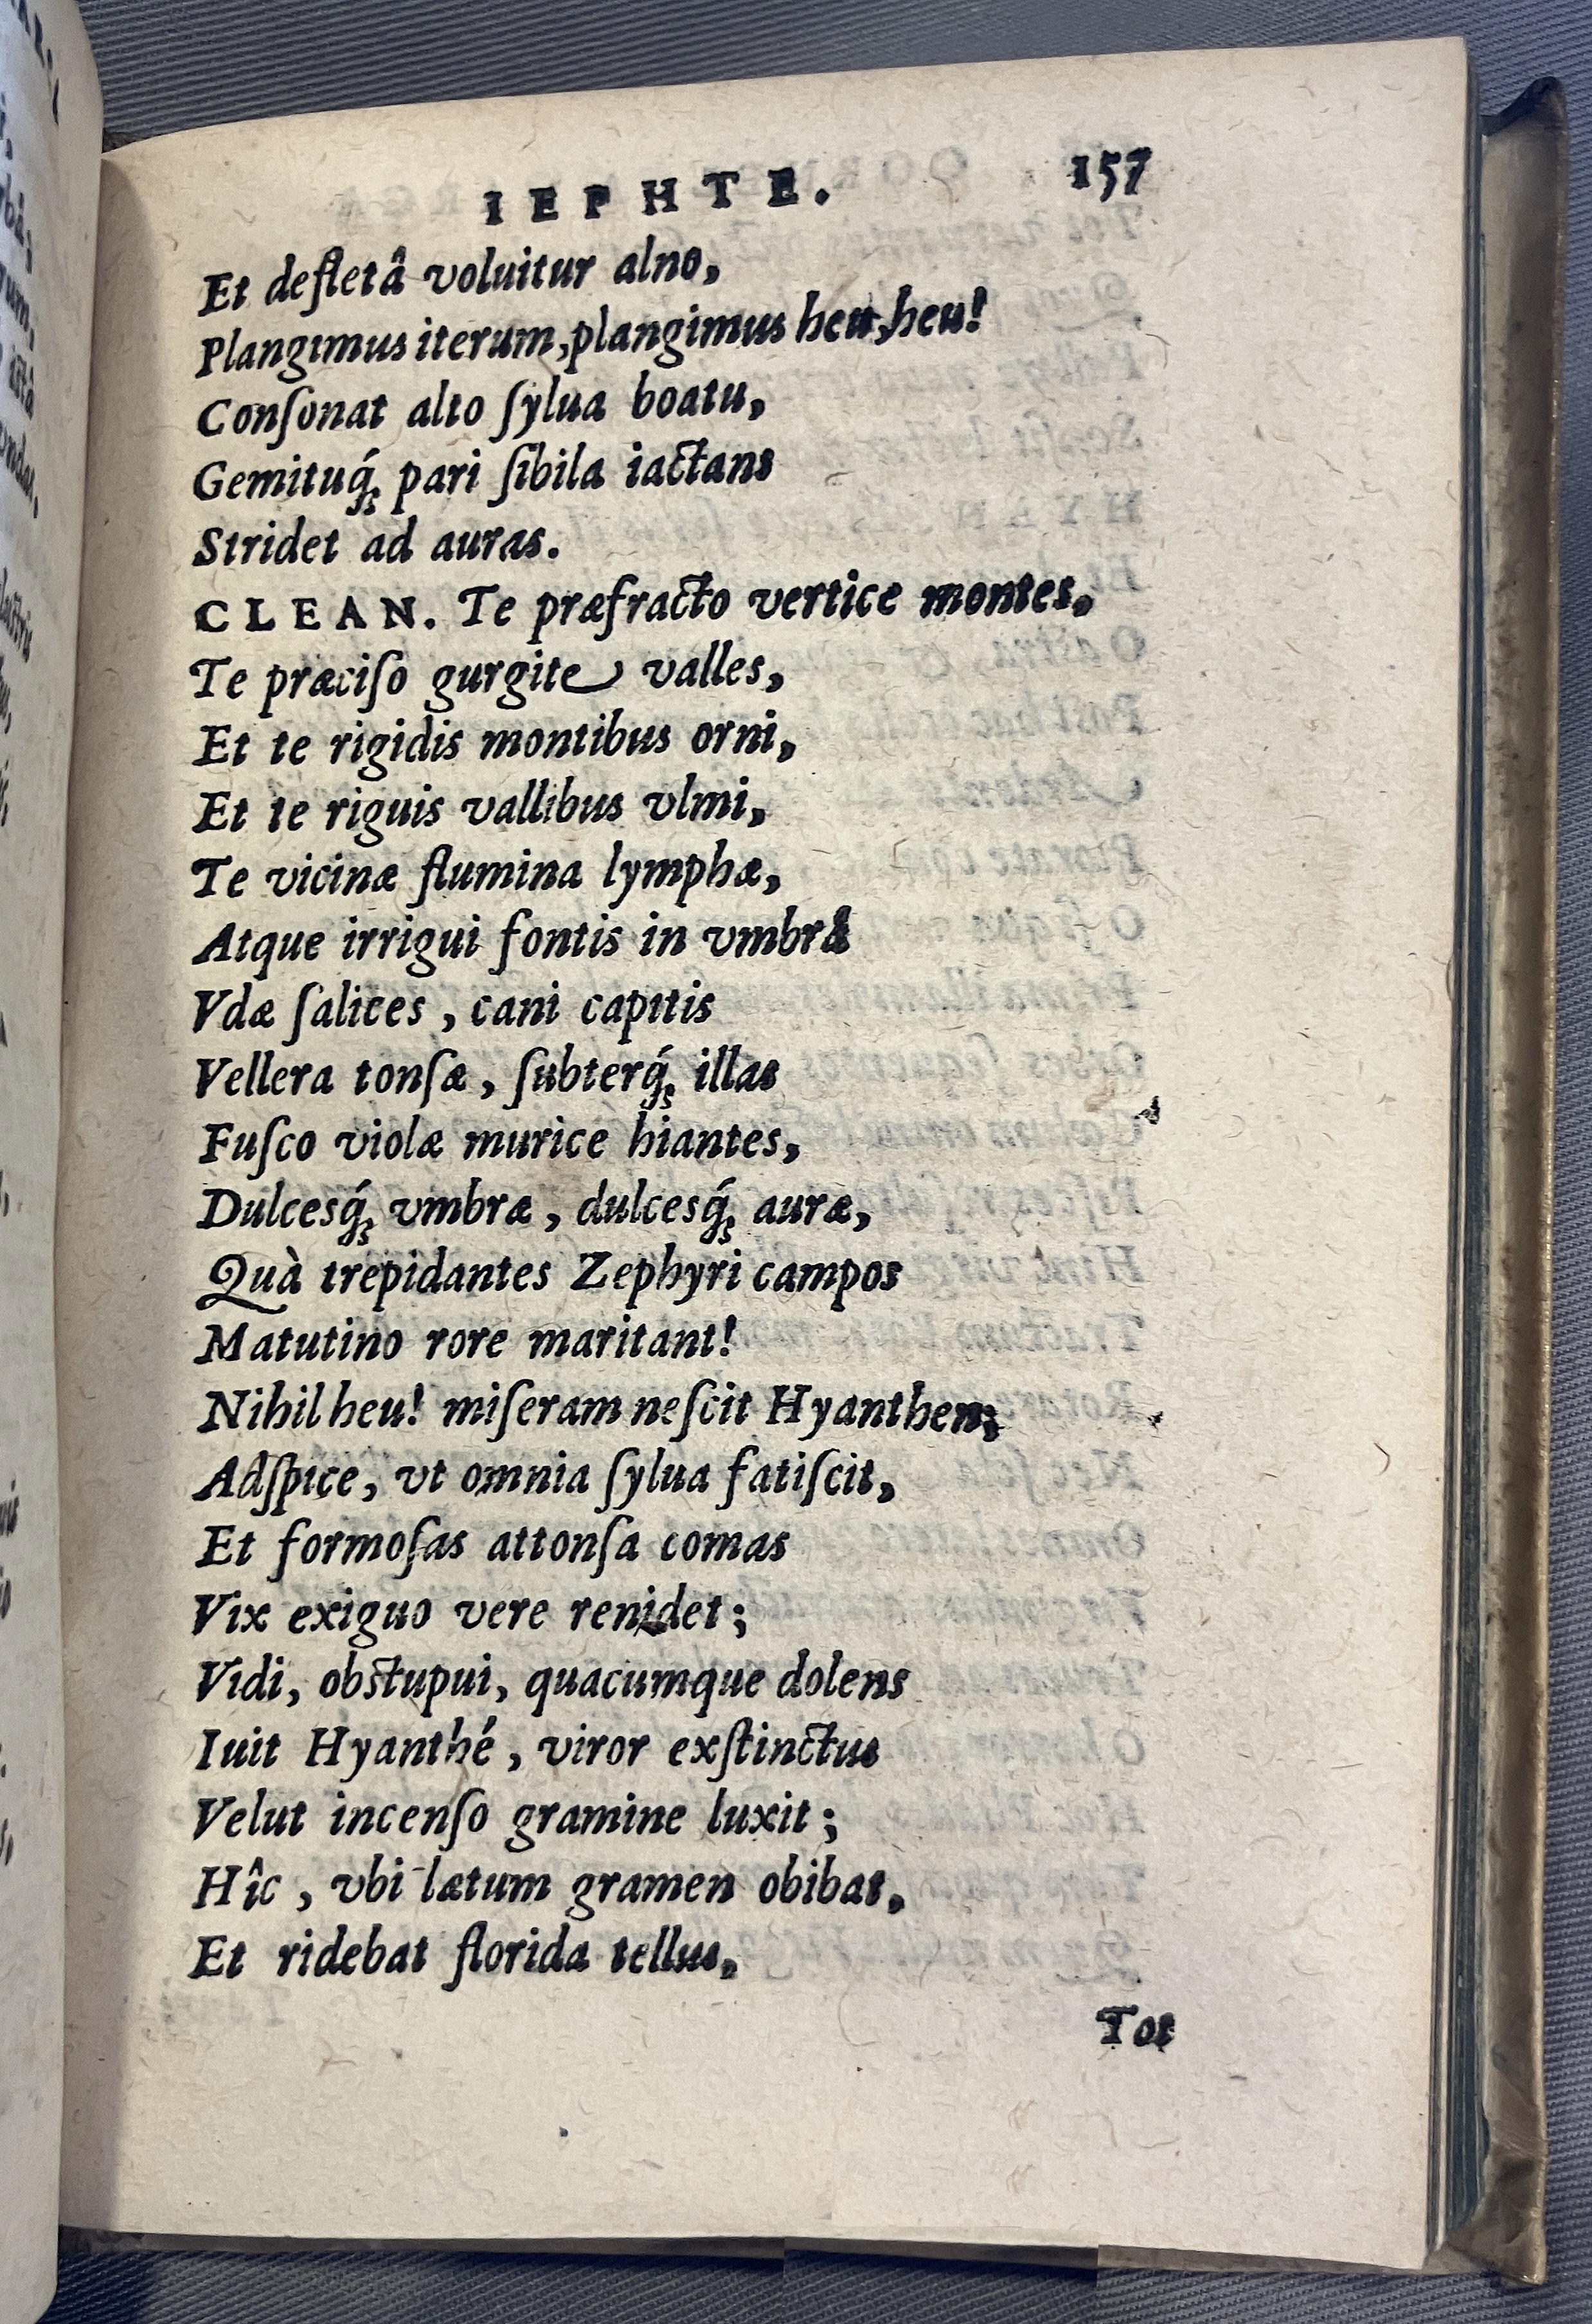 IEPHTE. 157
Et defletâ voluitur alno,
Plangimus iterum, plangimus heu, heu!
Conſonat alto ſylua boatu,
Gemituq́; pari ſibila iactans
Stridet ad auras.
CLEAN. Te præfracto vertice montes,
Te præciſo gurgite valles,
Et te rigidis montibus orni,
Et te riguis vallibus vlmi,
Te vicinæ flumina lymphæ,
Atque irrigui fontis in vmbrâ
Vdæ ſalices, cani capitis
Vellera tonſæ, ſubterq́; illas
Fuſco violæ murice hiantes,
Dulcesq́; vmbræ, dulcesq́; auræ,
Quà trepidantes Zephyri campos
Matutino rore maritant!
Nihil heu! miſeram neſcit Hyanthen;
Adſpice, vt omnia ſylua fatiſcit,
Et formoſas attonſa comas
Vix exiguo vere renidet;
Vidi, obstupui, quacumque dolens
Iuit Hyanthé, viror exſtinctus
Velut incenſo gramine luxit;
Hîc, vbi lætum gramen obibat,
Et ridebat florida tellus,
Tot